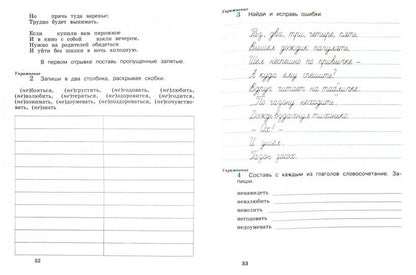 Но прячь туда варенье:
Трудно будет вынимать.
Если купила вам пирожное
И в кино с собой взяли вечером,
Нужно на родителей обидеться
И уйти без шапки в ночь холодную.
В первом отрывке поставь пропущенные запятые.
Упражнение
2 Запиши в два столбика, раскрывая скобки.
(не)бояться, (не)грустить, (не)годовать, (не)любить,
(не)взлюбить, (не)терять, (не)здоровится, (не)навидеть,
(не)понимать, (не)думевать, (не)поздороваться, (не)сочувство-
вать, (не)знать
32
Упражнение
3 Найди и исправь ошибки.
Раз, два, три, четыре, пять,
Вышел дождик погулять,
Шел неспешно по привычке –
А куда ему спешить?
Вдруг читает на табличке:
„По газону неходить."
Дождь вздохнул тихонько:
– Ох! –
И ушел.
Газон засох.
Упражнение
4 Составь с каждым из глаголов словосочетание. За-
пиши.
ненавидеть
невзлюбить
неволить
негодовать
недоумевать
33